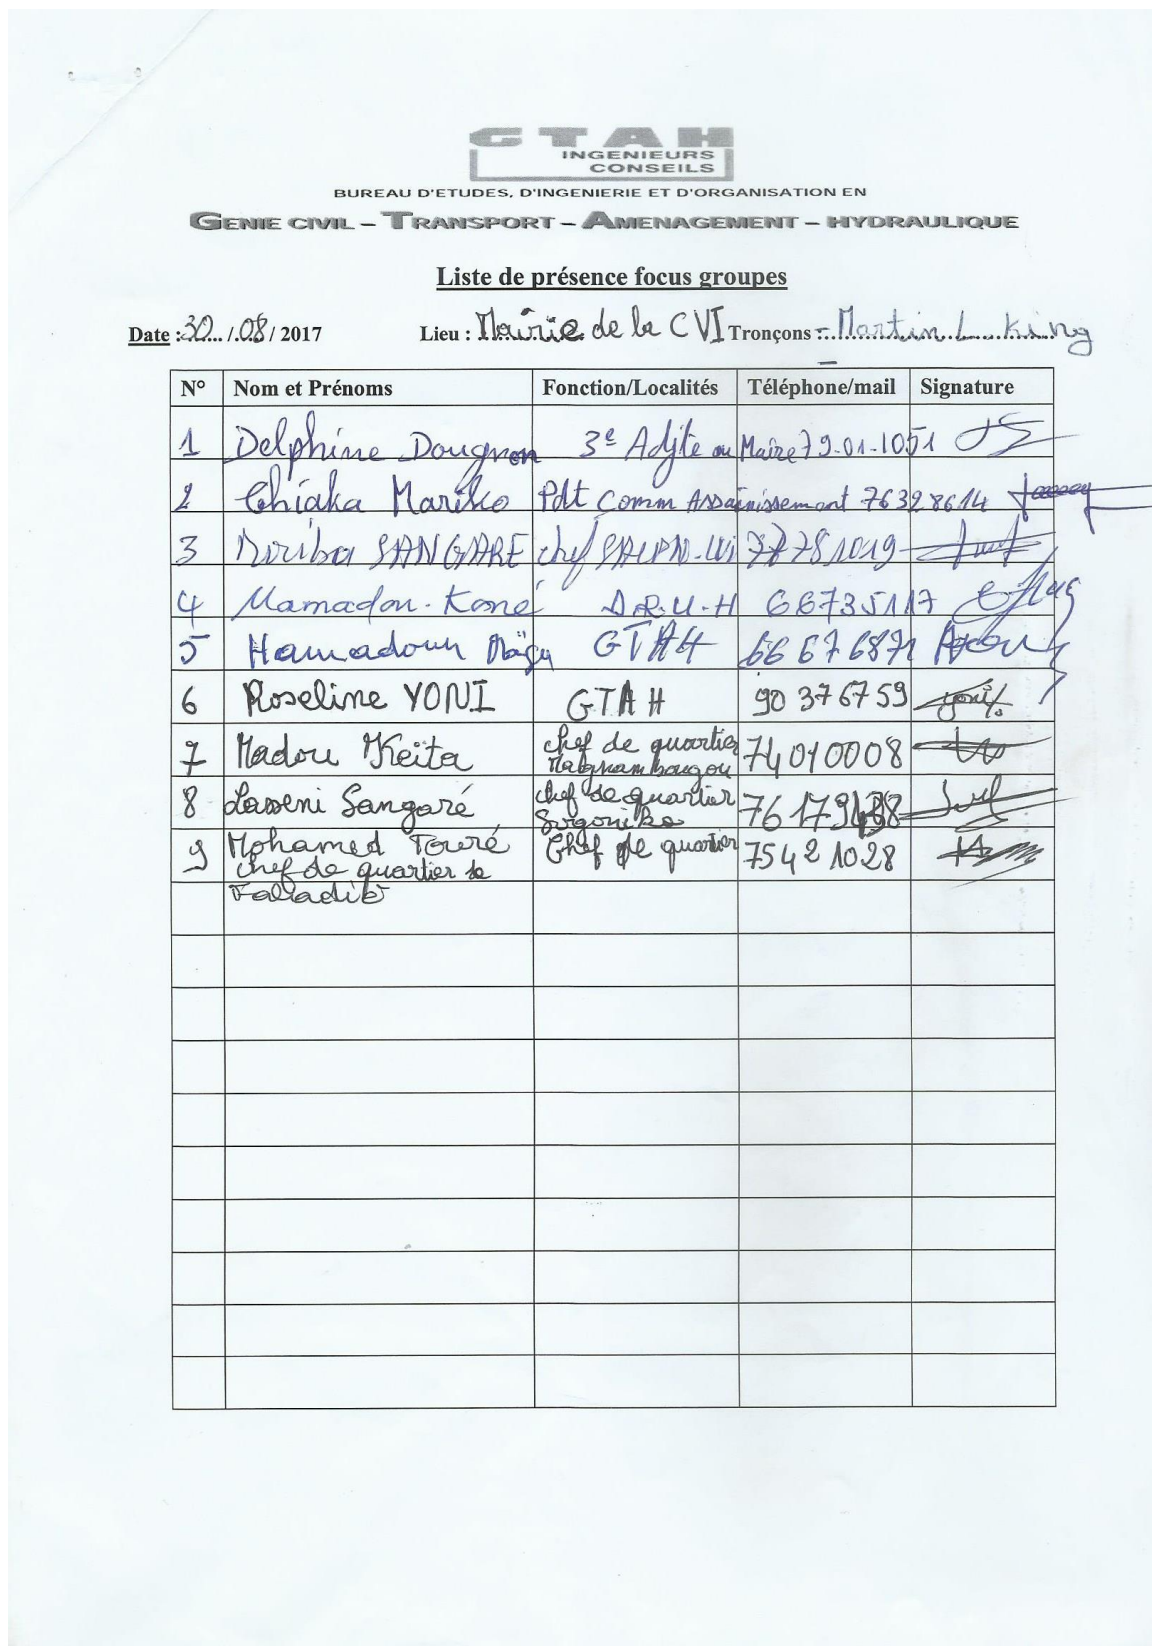 GTAH
INGENIEURS
CONSEILS
BUREAU D'ETUDES, D'INGENIERIE ET D'ORGANISATION EN
GENIE CIVIL – TRANSPORT – AMENAGEMENT – HYDRAULIQUE
Liste de présence focus groupes
Date : 30 / 08 / 2017 Lieu : Mairie de la CVI Tronçons : Martin L. King
N° Nom et Prénoms Fonction/Localités Téléphone/mail Signature
1 Delphine Dougnon 3e Adjte au Maire 79-01-1051
2 Chiaka Mariko Pdt Comm Assainissement 76328614
3 SANGARE chef 77781019
4 Mamadou Koné D.R.U.H 66735117
5 Hamadoun GTAH 66676871
6 Roseline YONI GTAH 90376759
7 Madou Keïta chef de quartier 74010008
Magnambougou
8 Lasseni Sangaré chef de quartier 76179
Sogoniko
9 Mohamed Touré Chef de quartier 75421028
chef de quartier de
Faladiè